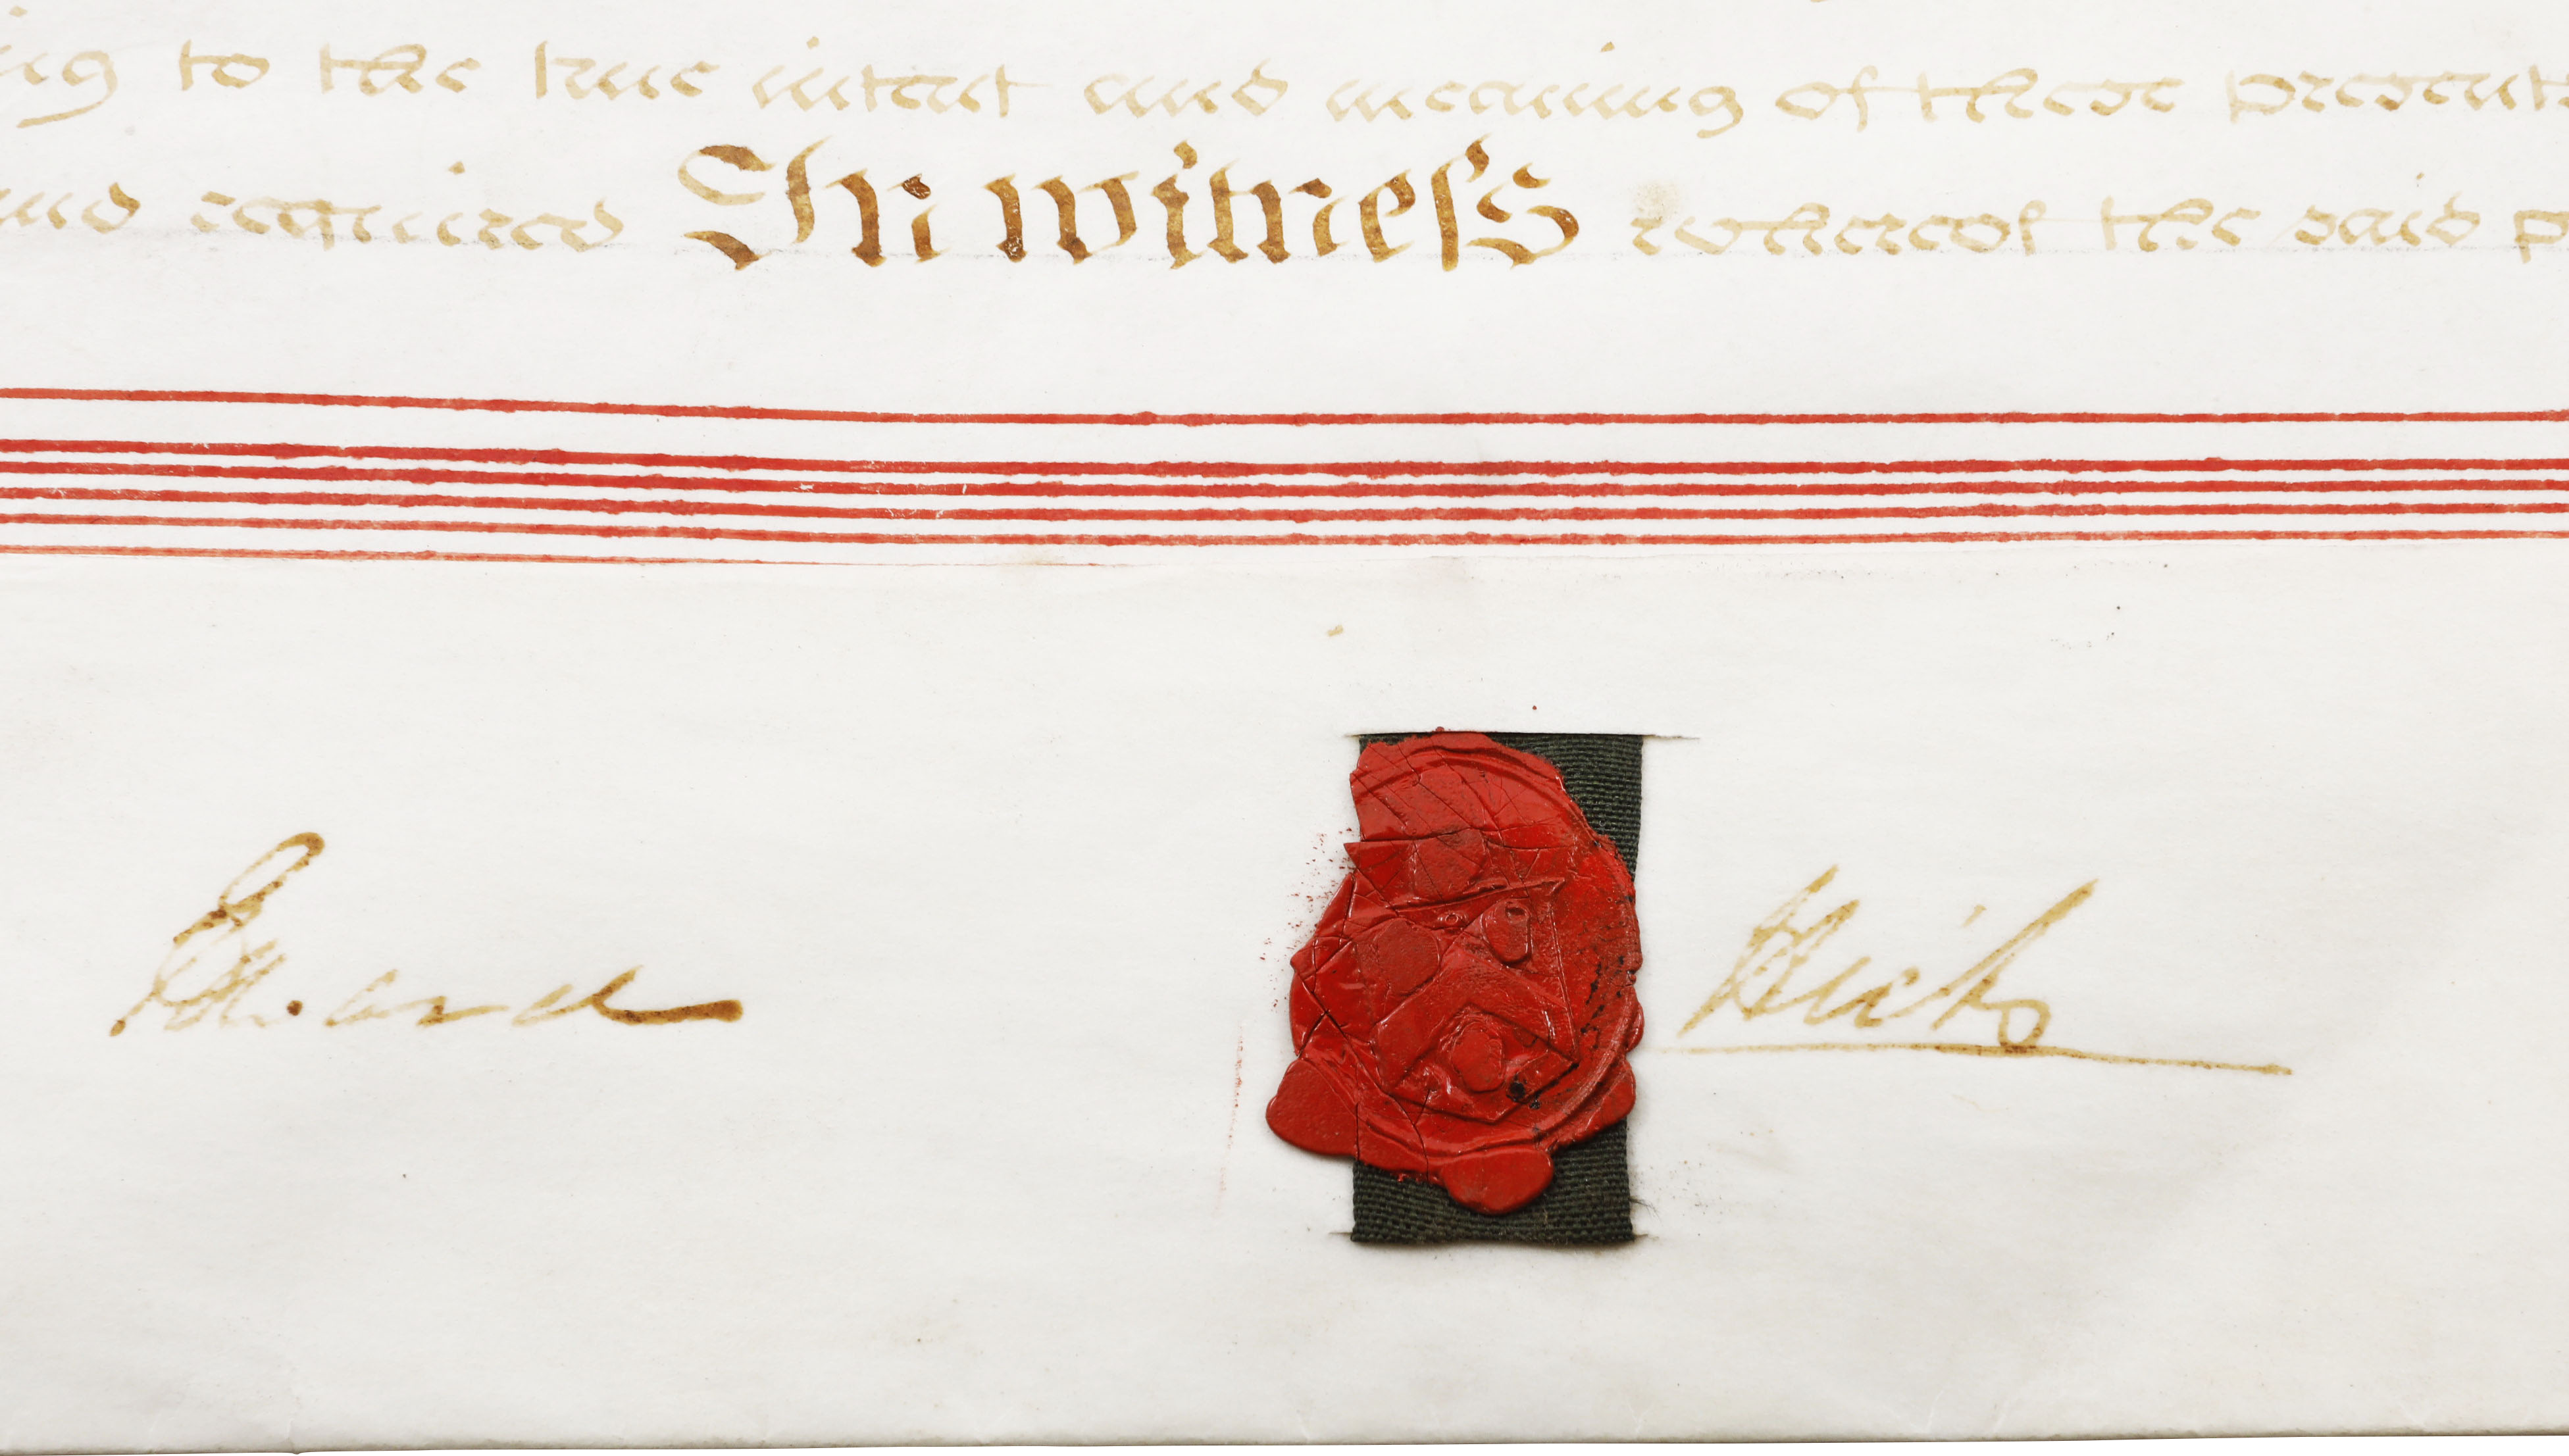 ing to the true intent and meaning of these presents
and required In witneſs whereof the said p
Edward Hicks